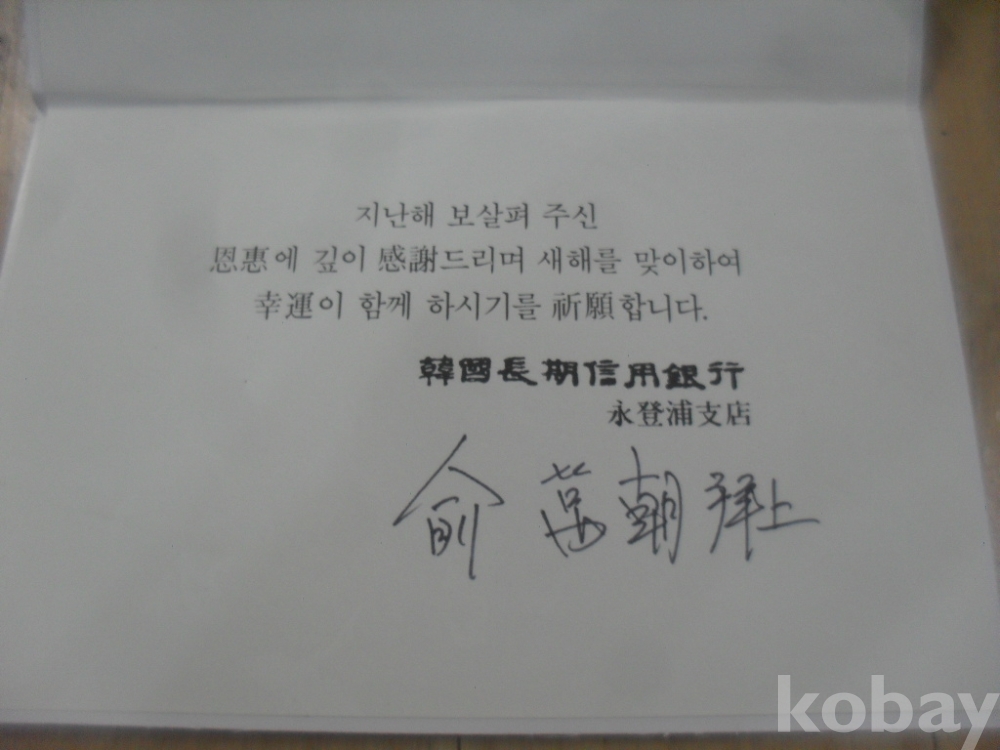 지난해 보살펴 주신
恩惠에 깊이 感謝드리며 새해를 맞이하여
幸運이 함께 하시기를 祈願합니다.
韓國長期信用銀行
永登浦支店
俞 萬朝 拜上
kobay